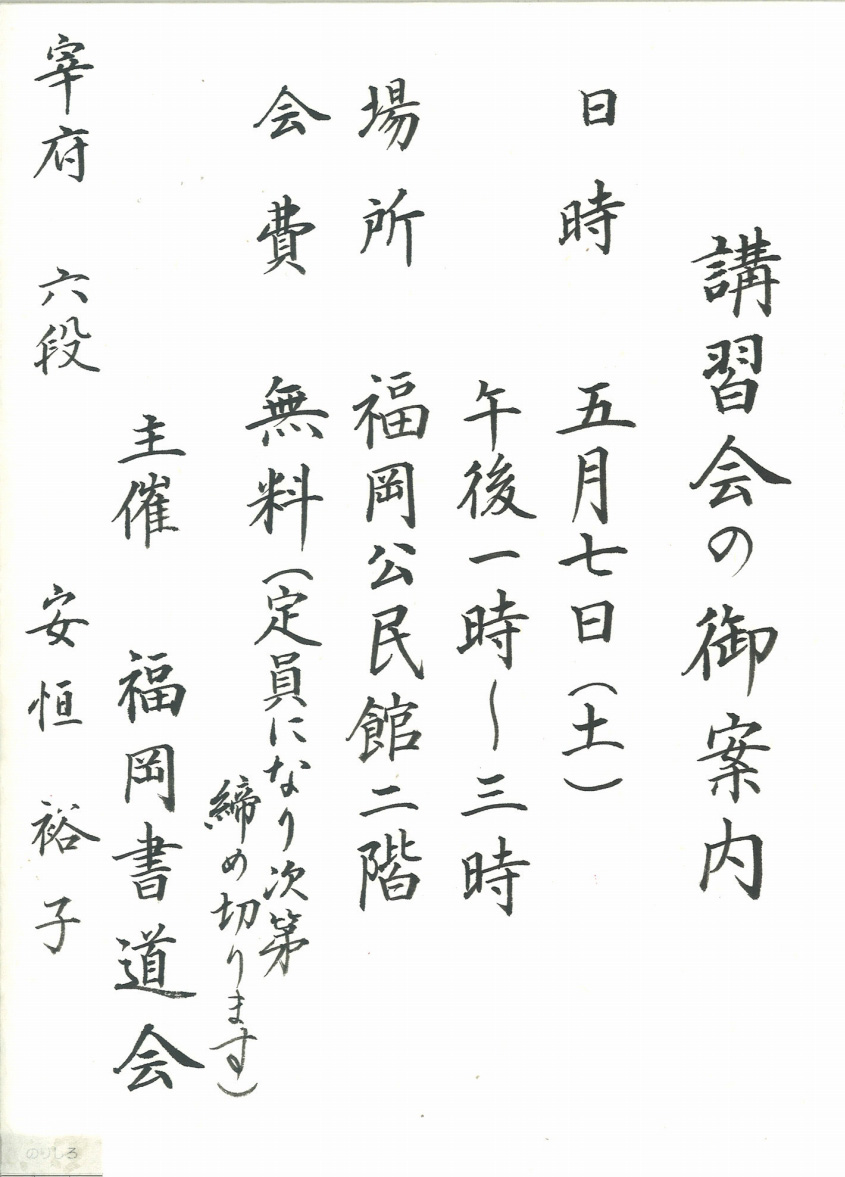 講習会の御案内
日時　五月七日（土）
午後一時～三時
場所　福岡公民館二階
会費　無料（定員になり次第
締め切ります）
主催　福岡書道会
宰府　六段　安恒　裕子
のりしろ